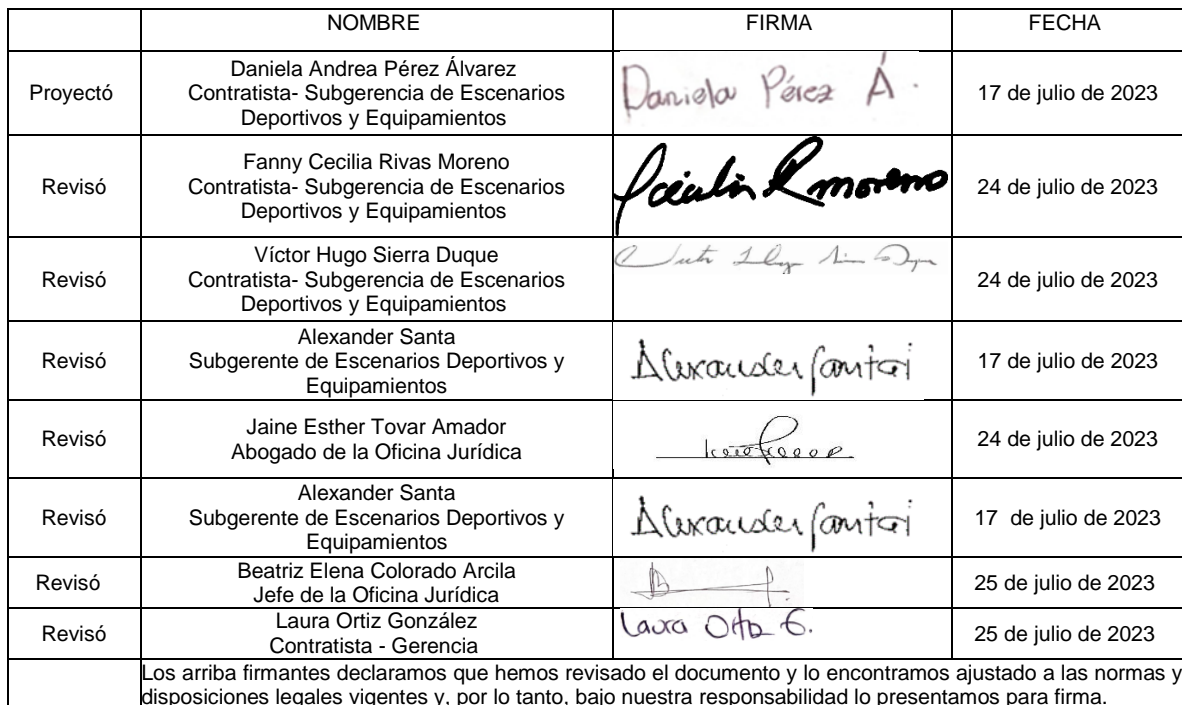 NOMBRE FIRMA FECHA
Proyectó
Daniela Andrea Pérez Álvarez
Contratista- Subgerencia de Escenarios
Deportivos y Equipamientos
Daniela Pérez Á.
17 de julio de 2023
Revisó
Fanny Cecilia Rivas Moreno
Contratista- Subgerencia de Escenarios
Deportivos y Equipamientos
Cecilia R moreno
24 de julio de 2023
Revisó
Víctor Hugo Sierra Duque
Contratista- Subgerencia de Escenarios
Deportivos y Equipamientos
24 de julio de 2023
Revisó
Alexander Santa
Subgerente de Escenarios Deportivos y
Equipamientos
Alexander Santa
17 de julio de 2023
Revisó
Jaine Esther Tovar Amador
Abogado de la Oficina Jurídica
24 de julio de 2023
Revisó
Alexander Santa
Subgerente de Escenarios Deportivos y
Equipamientos
Alexander Santa
17 de julio de 2023
Revisó
Beatriz Elena Colorado Arcila
Jefe de la Oficina Jurídica
25 de julio de 2023
Revisó
Laura Ortiz González
Contratista - Gerencia
Laura Ortiz G.
25 de julio de 2023
Los arriba firmantes declaramos que hemos revisado el documento y lo encontramos ajustado a las normas y
disposiciones legales vigentes y, por lo tanto, bajo nuestra responsabilidad lo presentamos para firma.